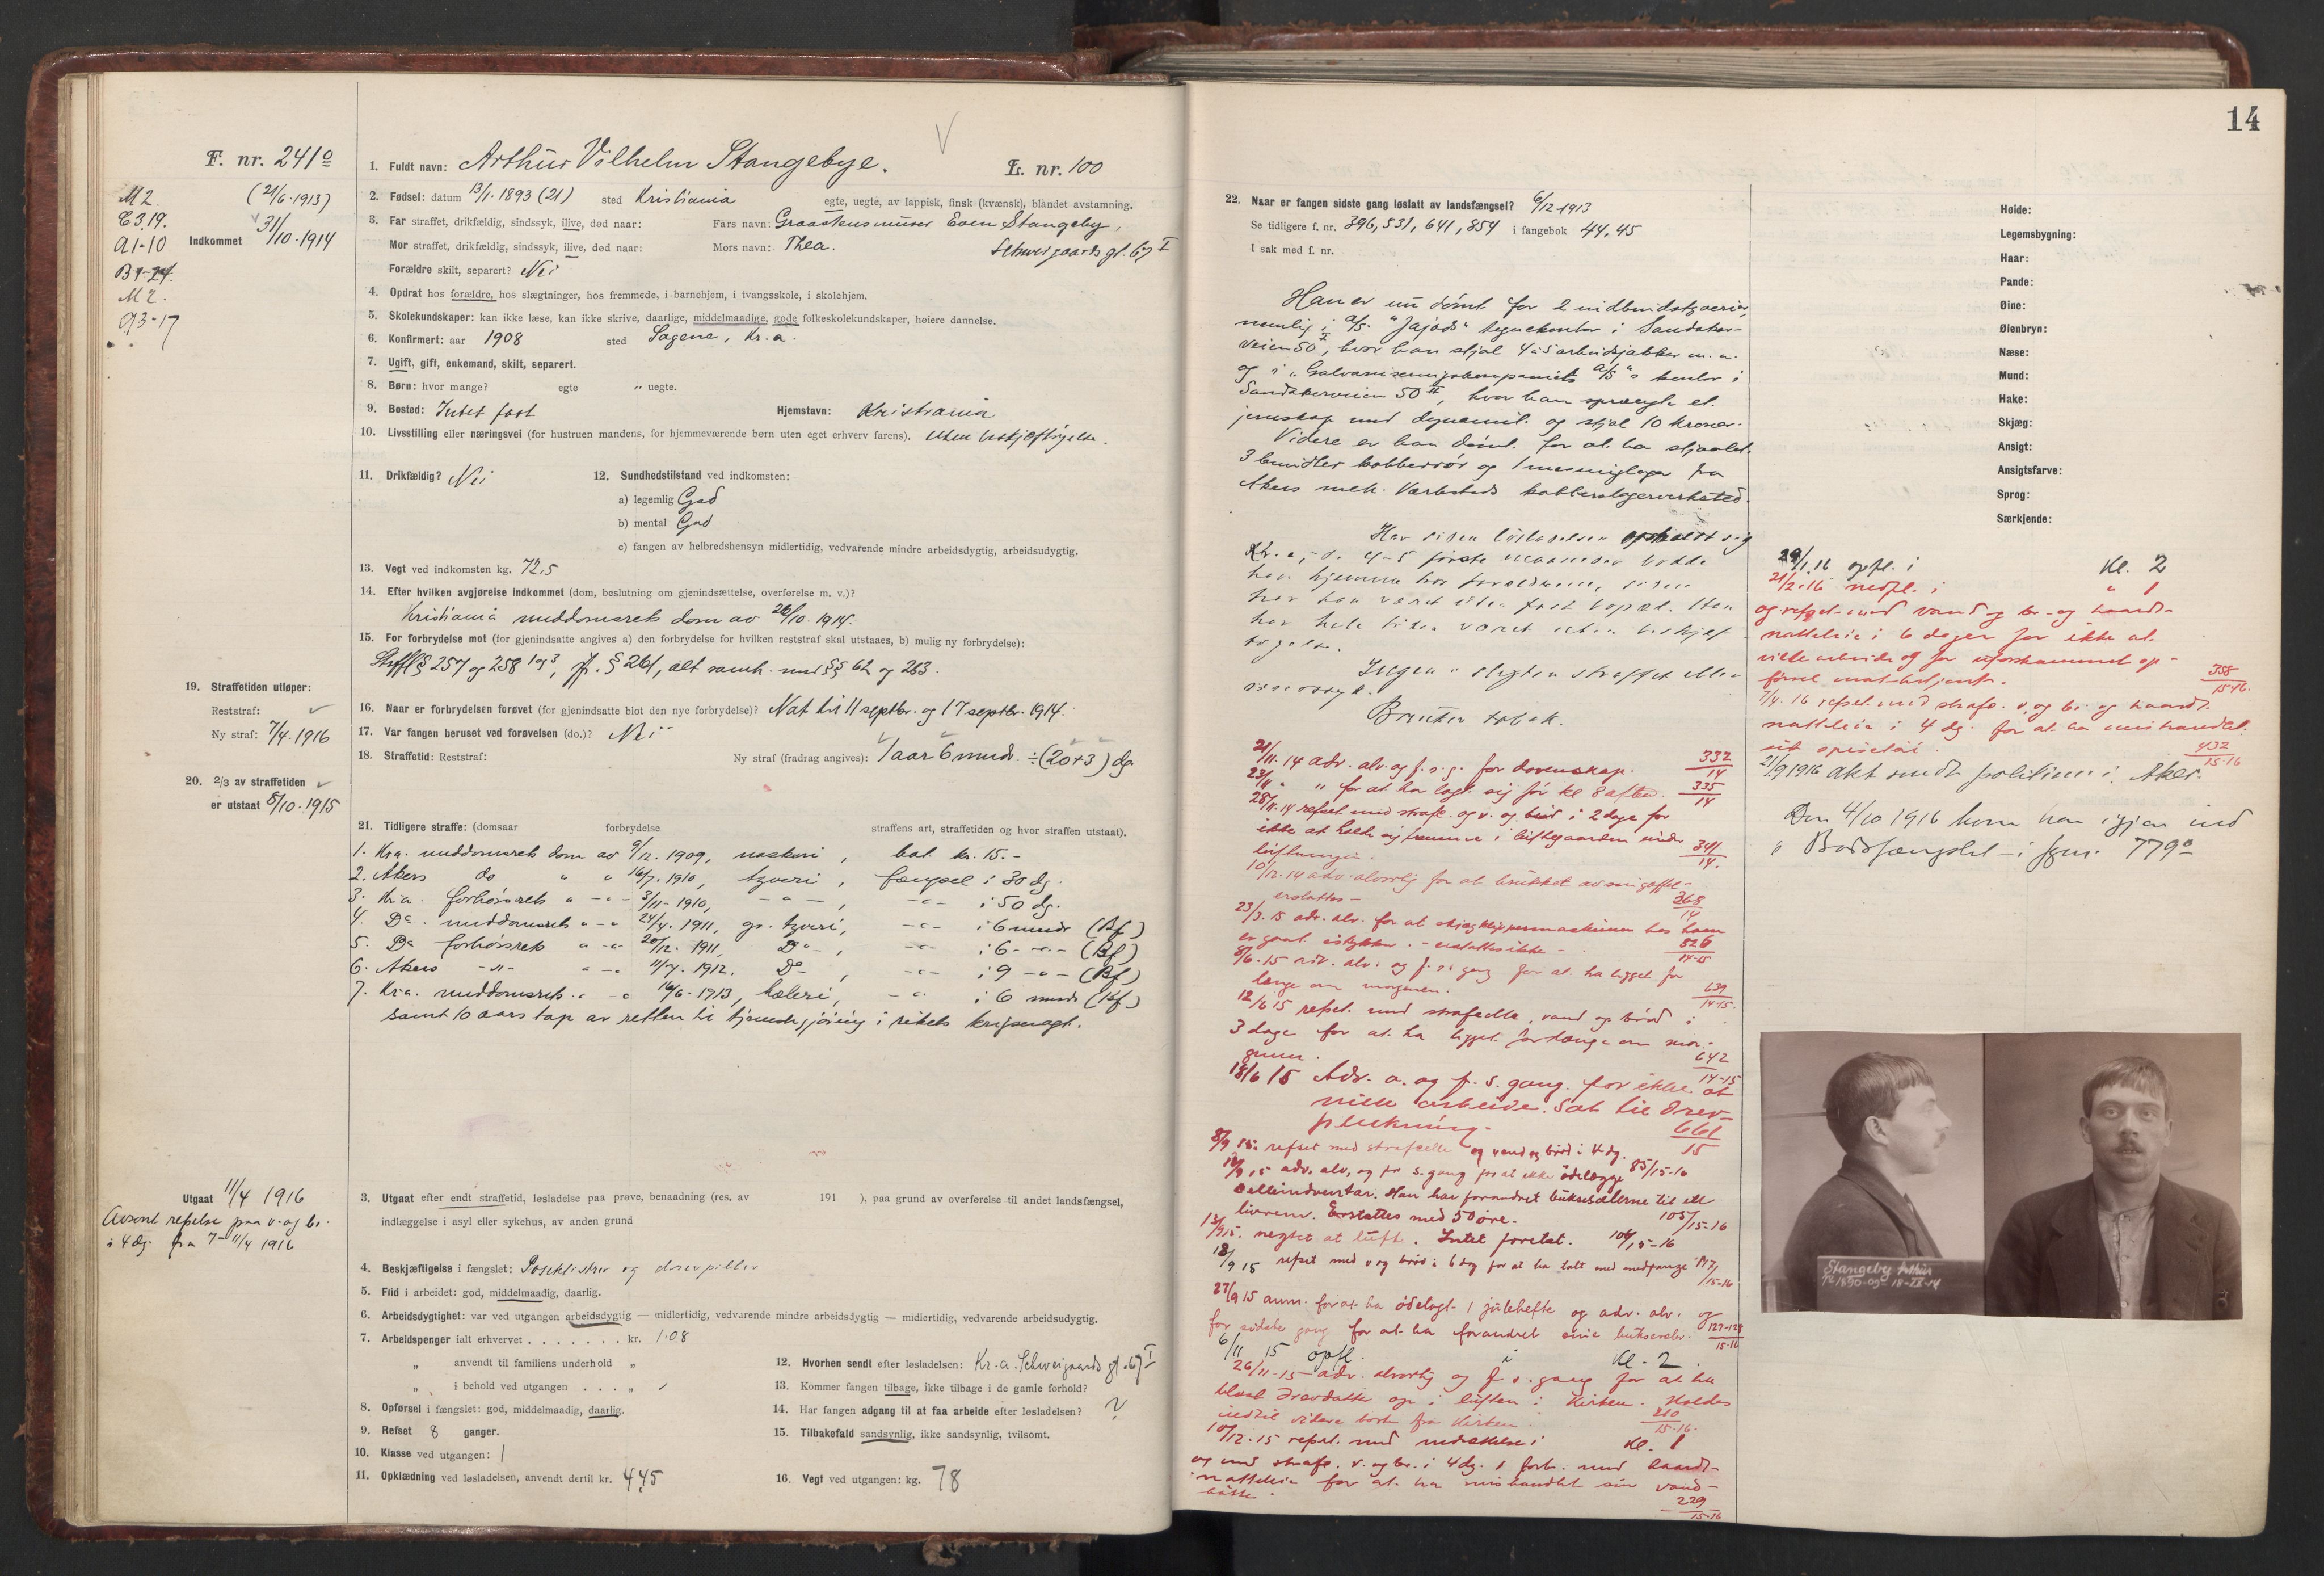 F. nr. 241º
M2.
(21/6·1913)
E3.19.
A1-10
Indkommet 31/10·1914
B1-24.
M2.
A3-17
1. Fuldt navn: Arthur Vilhelm Stangebye. L. nr. 100
2. Fødsel: datum 13/1·1893 (21) sted Kristiania egte, uegte, av lappisk, finsk (kvænsk), blandet avstamning.
3. Far straffet, drikfældig, sindssyk, ilive, død naar: Fars navn: Graastensmurer Even Stangeby,
Mor straffet, drikfældig, sindssyk, ilive, død naar: Mors navn: Thea. Schweigaards gt. 67 I
Forældre skilt, separert? Nei
4. Opdrat hos forældre, hos slægtninger, hos fremmede, i barnehjem, i tvangsskole, i skolehjem.
5. Skolekundskaper: kan ikke læse, kan ikke skrive, daarlige, middelmaadige, gode folkeskolekundskaper, høiere dannelse.
6. Konfirmert: aar 1908 sted Sagene, Kr.a.
7. Ugift, gift, enkemand, skilt, separert.
8. Børn: hvor mange? egte " uegte.
9. Bosted: Intet fast Hjemstavn: Kristiania
10. Livsstilling eller næringsvei (for hustruen mandens, for hjemmeværende børn uten eget erhverv farens). Uten beskjæftigelse.
11. Drikfældig? Nei 12. Sundhedstilstand ved indkomsten:
a) legemlig God
b) mental God
c) fangen av helbredshensyn midlertidig, vedvarende mindre arbeidsdygtig, arbeidsudygtig.
13. Vegt ved indkomsten kg. 72,5
14. Efter hvilken avgjørelse indkommet (dom, beslutning om gjenindsættelse, overførelse m. v.)?
Kristiania meddomsrets dom av 26/10·1914.
15. For forbrydelse mot (for gjenindsatte angives a) den forbrydelse for hvilken reststraf skal utstaaes, b) mulig ny forbrydelse):
Strfl. § 257 og 258 1 og 3, jfr. § 261, alt samh. med §§ 62 og 263.
19. Straffetiden utløper:
Reststraf:
Ny straf: 7/4·1916
16. Naar er forbrydelsen forøvet (for gjenindsatte blot den nye forbrydelse)? Nat til 11 septbr. og 17 septbr. 1914.
17. Var fangen beruset ved forøvelsen (do.)? Nei
18. Straffetid: Reststraf: Ny straf (fradrag angives): 1 aar 6 mndr. ÷ (20+3) dg.
20. 2/3 av straffetiden
er utstaat 8/10·1915
21. Tidligere straffe: (domsaar forbrydelse straffens art, straffetiden og hvor straffen utstaat).
1. Kr.a. meddomsrets dom av 9/12·1909, naskeri, bøt. kr. 15.-
2. Akers do " " 16/7·1910, tyveri, fængsel i 30 dg.
3. Kr.a. forhørsrets " -"- 3/11-1910, -"-, -"- i 50 dg.
4. Dº meddomsrets "-" 24/4·1911, gr. tyveri, -"- i 6 mndr (Bf)
5. Dº forhørsrets " -"- 20/12·1911, Dº, -"- i 6 -"- (Bf)
6. Akers -"- "-" 11/7·1912. Dº, -"- i 9 -"- (Bf)
7. Kr.a. meddomsrets "-" 16/6·1913, hæleri, -"- i 6 mndr (Bf)
samt 10 aars tap av retten til tjenestegjøring i rikets krigsmagt.
Utgaat 11/4 1916
Avsont refselse paa v. og br.
i 4 dg. fra 7-11/4 1916
3. Utgaat efter endt straffetid, løsladelse paa prøve, benaadning (res. av 191 ), paa grund av overførelse til andet landsfængsel,
indlæggelse i asyl eller sykehus, av anden grund
4. Beskjæftigelse i fængslet: Poseklistrer og drevpiller
5. Flid i arbeidet: god, middelmaadig, daarlig.
6. Arbeidsdygtighet: var ved utgangen arbeidsdygtig — midlertidig, vedvarende mindre arbeidsdygtig — midlertidig, vedvarende arbeidsudygtig.
7. Arbeidspenger ialt erhvervet . . . . . . . kr. 1.08
" anvendt til familiens underhold "
" i behold ved utgangen . . . "
8. Opførsel i fængslet: god, middelmaadig, daarlig.
9. Refset 8 ganger.
10. Klasse ved utgangen: 1
11. Opklædning ved løsladelsen, anvendt dertil kr. 4,45
12. Hvorhen sendt efter løsladelsen: Kr.a. Schweigaards gt. 67 I
13. Kommer fangen tilbage, ikke tilbage i de gamle forhold?
14. Har fangen adgang til at faa arbeide efter løsladelsen? ?
15. Tilbakefald sandsynlig, ikke sandsynlig, tvilsomt.
16. Vegt ved utgangen: kg. 78
14
22. Naar er fangen sidste gang løslatt av landsfængsel? 6/12-1913
Se tidligere f. nr. 396, 531, 641, 854 i fangebok 44, 45
I sak med f. nr.
Han er nu dømt for 2 indbrudstyverier,
nemlig i A/S. "Jajods" tegnekontor i Sandaker-
veien 50 I, hvor han stjal 4 à 5 arbeidsjakker m. m.
og i "Galvaniseringskompaniets A/S"s kontor i
Sandakerveien 50 II, hvor han sprængte et
jernskap med dynamit og stjal 10 kroner.
Videre er han dømt for at ha stjaalet
3 bundter kobberrør og 1 messinglager fra
Akers mek. Værksteds kobberslagerverksted.
Har siden løsladelsen opholdt sig
Kr.a, de 4-5 første maaneder bodde
han hjemme hos forældrene, siden
har han været uten fast bopæl. Han
har hele tiden været uten beskjæf-
tigelse.
Ingen i slegten straffet eller
sindssyk.
Bruker tobak.
21/11·14 adv. alv. og f. s. g. for dovenskap. 332/14
23/11 " " for at ha lagt sig før kl 8 aften. 335/14
28/11·14 refset med strafc. og v. og brød i 2 dage for
ikke at holde sig fremme i luftegaarden under
luftningen. 341/14.
10/12·14 adv. alvorlig for at brukket av en gaffel-
erstattes - 368/14
23/3·15 adv. alv. for at skjægklippermaskinen hos ham
er gaaet istykker. - erstattes ikke - 526/14-15
8/6·15 adv. alv. og f. s. gang for at ha ligget for
længe om morgenen. 639/14-15.
12/6 15 refset med strafcelle, vand og brød i
3 dage for at ha ligget for længe om mor-
genen. 642/14-15
18/6 15 Adv. a. og f. s. gang. for ikke at
ville arbeide. Sat til drev-
plukning. 661/15
8/9 15. refset med strafcelle og vand og brød i 4 dg. 85/15-16
12/9 15 adv. alv. og for s. gang for at ikke ødelægge
celleindventar. Han har forandret bukseselerne til et
livrem. Erstattes med 50 øre. 105/15-16
13/9 15. negtet at lufte. Intet foretat. 106/15-16
18/9 15 refset med v og brød i 6 dg for at ha talt med medfange 117/15-16
27/9 15 anm. for at ha ødelagt 1 julehefte og adv. alv. og
for sidste gang for at ha forandret sine bukseseler. 127-128/15-16
6/11 15 opfl. i Kl. 2.
26/11-15 - adv. alvorlig og f. s. gang for at ha
blæst drevdotter op i luften i Kirken. Holdes
indtil videre borte fra Kirken. 210/15-16.
10/12·15 refset med nedsættelse i Kl. 1
og med strafc. v. og br. i 4 dg. i forb. med haardt
natteleie for at ha mishandlet sin vand-
bøtte. 229/15-16
Høide:
Legemsbygning:
Haar:
Pande:
Øine:
Øienbryn:
Næse:
Mund:
Hake:
Skjæg:
Ansigt:
Ansigtsfarve:
Sprog:
Særkjende:
29/1.16 opfl. i Kl. 2
21/2·16 nedfl. i " 1
og refset med vand og br. og haardt
natteleie i 6 dager for ikke at
ville arbeide og for uforskammet op-
førsel mot betjent. 358/15-16.
7/4.16 refset med strafc. v. og br. og haardt
natteleie i 4 dg. for at ha mishandlet
sit spisetøi. 432/15-16
21/9 1916 akt sendt politiet i Aker.
Den 4/10 1916 kom han igjen ind
i Bodsfængslet - i fgnr. 779º
Stangeby Arthur
18-IX-14